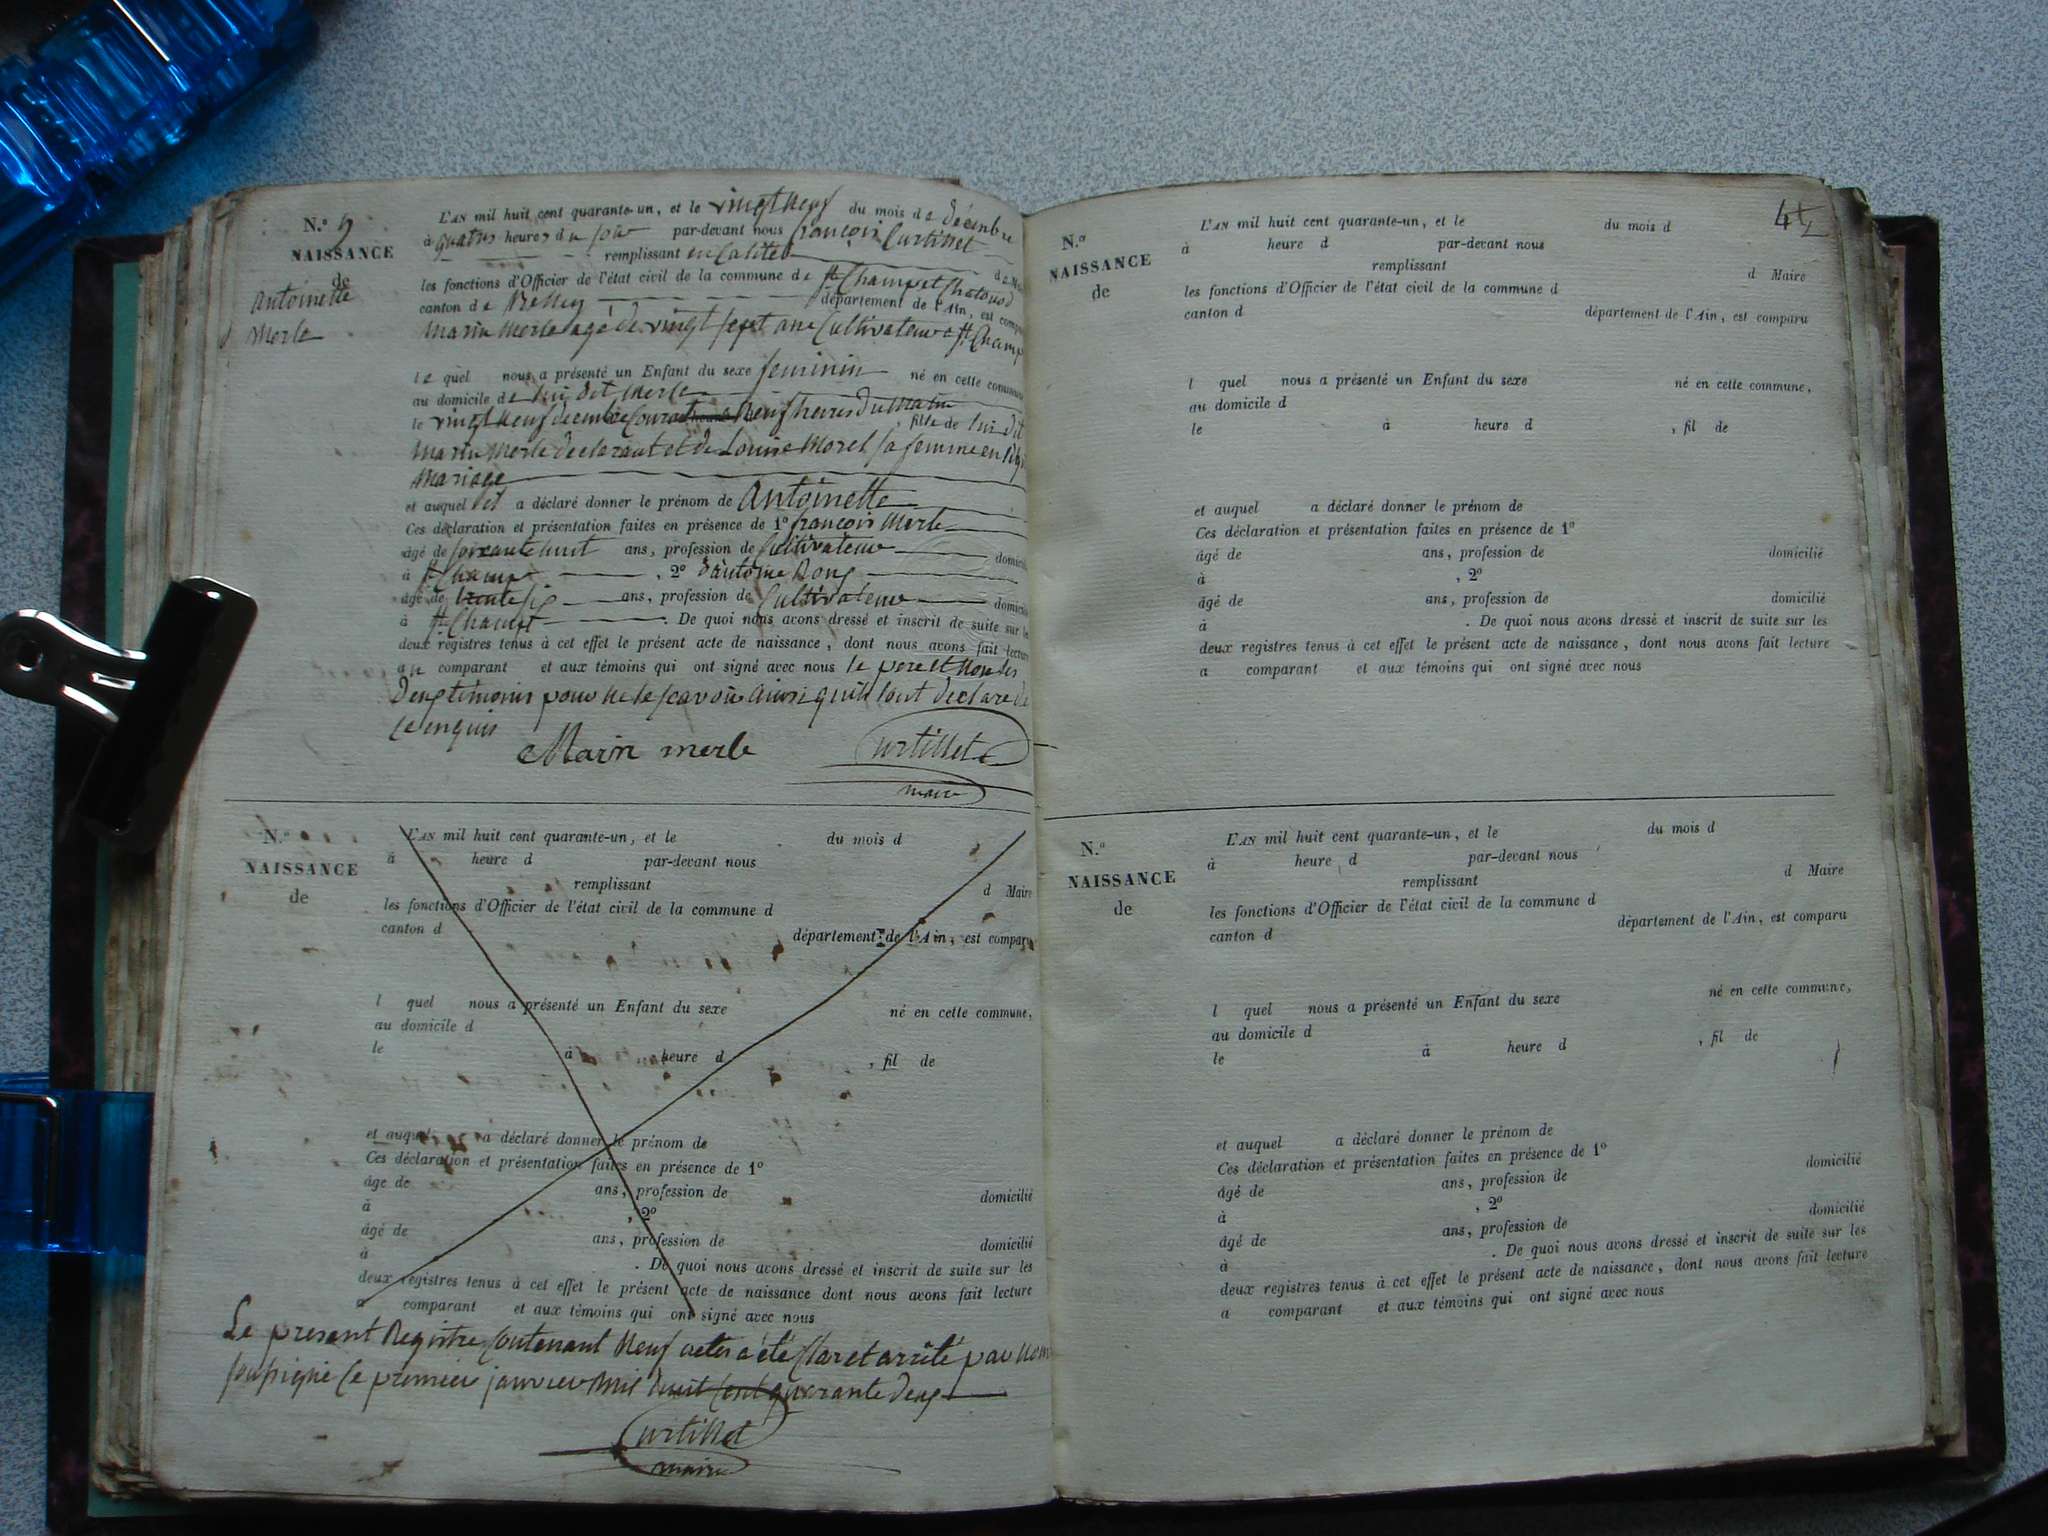 N.o 9
NAISSANCE
de
Antoinette
Merle
L'AN mil huit cent quarante-un, et le vingt neuf du mois de décembre
à quatre heures du soir par-devant nous françois Curtillet
remplissant en qualité de Maire
les fonctions d'Officier de l'état civil de la commune de St Champ et Chatonod
canton de Belley département de l'Ain, est comparu
Marin Merle agé de vingt sept ans Cultivateur a St Champ
le quel nous a présenté un Enfant du sexe feminin né en cette commune
au domicile de lui dit Merle
le vingt neuf decembre Courant a Neuf heures du Matin, fille de lui dit
Marin Merle declarant et de Louise Morel sa femme en
Mariage
et auquel il a déclaré donner le prénom de Antoinette
Ces déclaration et présentation faites en présence de 1o francois Merle
âgé de soixante huit ans, profession de Cultivateur domicilié
à St Champ, 2o d'antoine
âgé de trente six ans, profession de Cultivateur domicilié
à St Champ. De quoi nous avons dressé et inscrit de suite sur les
deux registres tenus à cet effet le présent acte de naissance, dont nous avons fait lecture
au comparant et aux témoins qui ont signé avec nous le pere et Non les
deux témoins pour ne le scavoir ainsi quils l'ont declare de
ce enquis
Marin merle Curtillet
maire
N.o
NAISSANCE
de
L'AN mil huit cent quarante-un, et le du mois d
à heure d par-devant nous
remplissant d Maire
les fonctions d'Officier de l'état civil de la commune d
canton d département de l'Ain, est comparu
l quel nous a présenté un Enfant du sexe né en cette commune,
au domicile d
le à heure d , fil de
et auquel a déclaré donner le prénom de
Ces déclaration et présentation faites en présence de 1o
âge de ans, profession de domicilié
à , 2o
âgé de ans, profession de domicilié
à . De quoi nous avons dressé et inscrit de suite sur les
deux registres tenus à cet effet le présent acte de naissance dont nous avons fait lecture
a comparant et aux témoins qui ont signé avec nous
Le present Registre Contenant Neuf actes a été Clos et arrêté par nous
soussigné le premier janvier Mil huit Cent quarante deux
Curtillet
maire
44
N.o
NAISSANCE
de
L'AN mil huit cent quarante-un, et le du mois d
à heure d par-devant nous
remplissant d Maire
les fonctions d'Officier de l'état civil de la commune d
canton d département de l'Ain, est comparu
l quel nous a présenté un Enfant du sexe né en cette commune,
au domicile d
le à heure d , fil de
et auquel a déclaré donner le prénom de
Ces déclaration et présentation faites en présence de 1o
âgé de ans, profession de domicilié
à , 2o
âgé de ans, profession de domicilié
à . De quoi nous avons dressé et inscrit de suite sur les
deux registres tenus à cet effet le présent acte de naissance, dont nous avons fait lecture
a comparant et aux témoins qui ont signé avec nous
N.o
NAISSANCE
de
L'AN mil huit cent quarante-un, et le du mois d
à heure d par-devant nous
remplissant d Maire
les fonctions d'Officier de l'état civil de la commune d
canton d département de l'Ain, est comparu
l quel nous a présenté un Enfant du sexe né en cette commune,
au domicile d
le à heure d , fil de
et auquel a déclaré donner le prénom de
Ces déclaration et présentation faites en présence de 1o
âgé de ans, profession de domicilié
à , 2o
âgé de ans, profession de domicilié
à . De quoi nous avons dressé et inscrit de suite sur les
deux registres tenus à cet effet le présent acte de naissance, dont nous avons fait lecture
a comparant et aux témoins qui ont signé avec nous